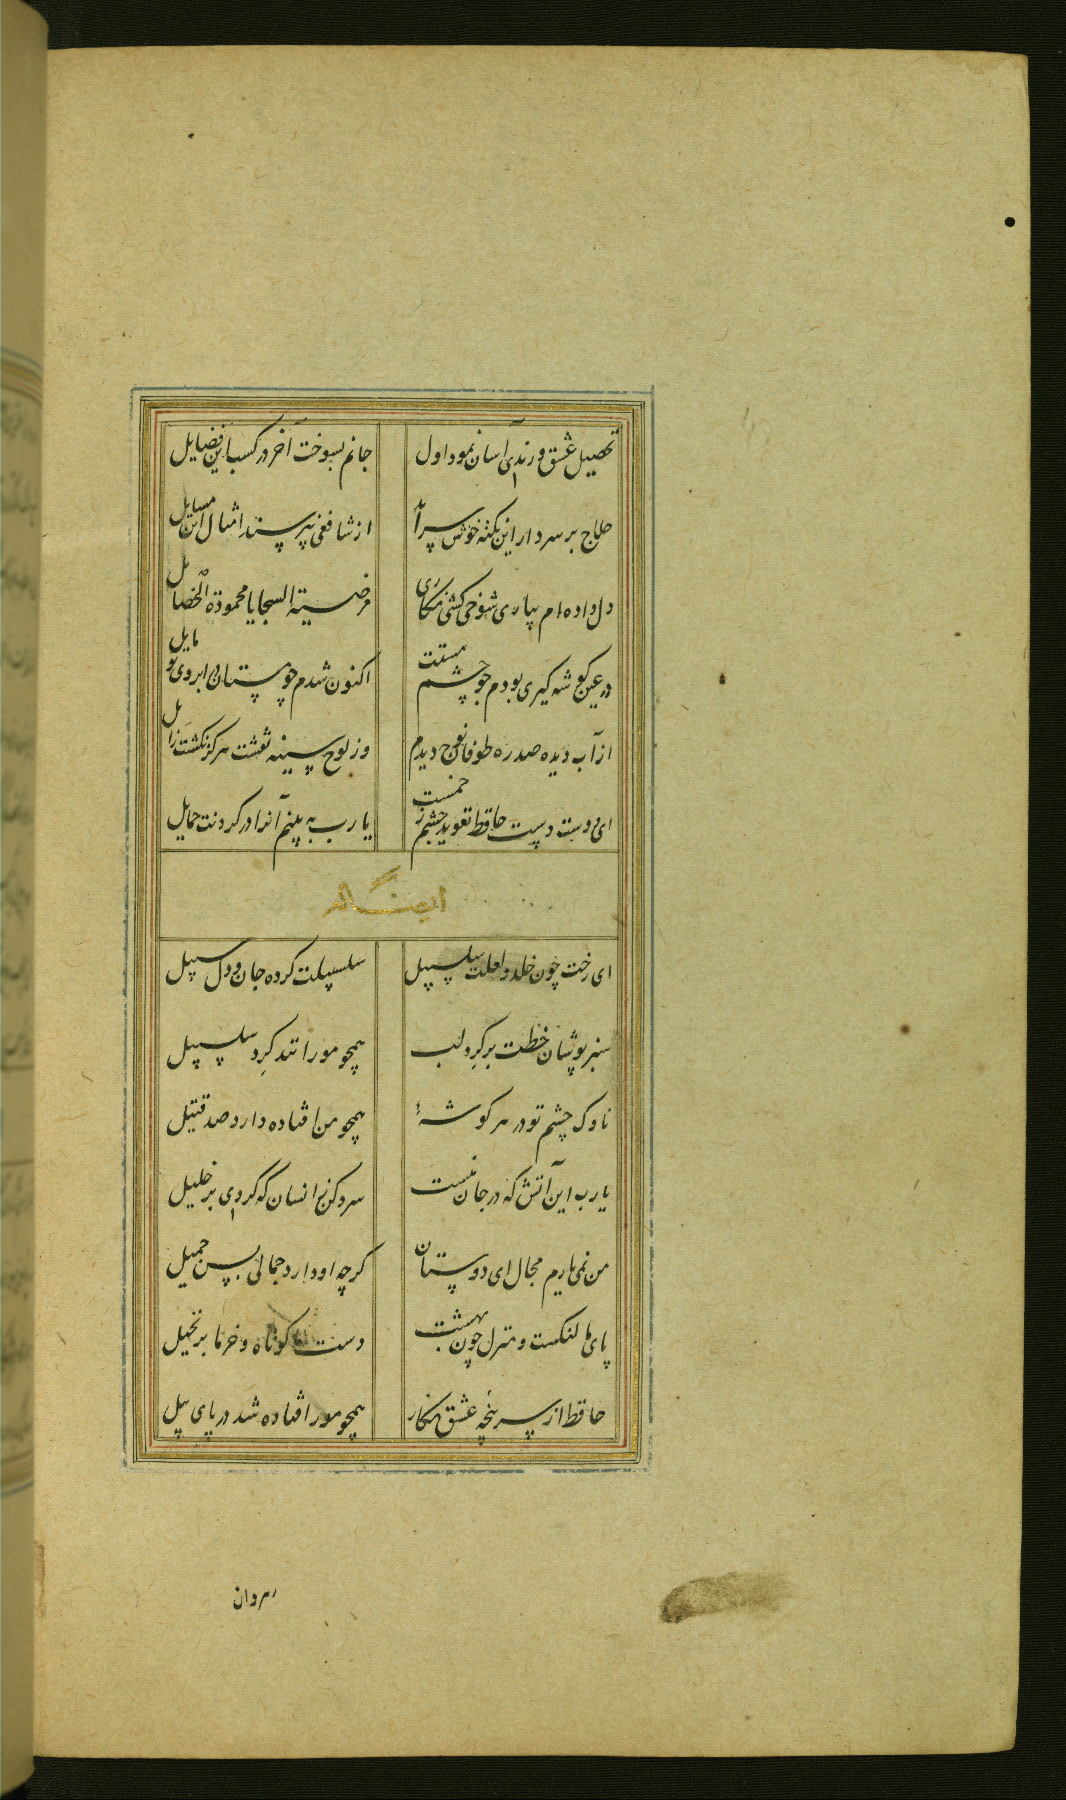 تحصیل عشق و رندی آسان نمود اول جانم بسوخت آخر در کسب این فضایل
حلاج بر سر دار این نکته خوش سراید از شافعی نپرسند امثال این مسایل
دل داده‌ام بیاری شوخی کشی نکاری مرضیته السجایا محمودة الخصایل
در عین کوشه کیری بودم چو چشم مستت اکنون شدم چو مستان بر ابروی تو مایل
از آب دیده صد ره طوفان نوح دیدم وز لوح سینه نقشت هرگز نکشت زایل
ای دوست دست حافظ تعوید چشم زخمست یا رب به بینم آنرا در کردنت حمایل
ای رخت چون خلد و لعلت سلسبیل سلسبیلت کرده جان و دل سبیل
سبزپوشان خطت بر کرد لب همچو مورانند کرد سلسبیل
ناوک چشم تو در هر کوشهٔ همچو من افتاده دارد صد قتیل
یا رب این آتش که در جان منست سرد کن زانسان که کردی بر خلیل
من نمی‌یارم مجال ای دوستان کرچه او دارد جمالی بس جمیل
پای ما لنکست و منزل چون بهشت دست ما کوتاه و خرما بر نخیل
حافظ از سر پنجه عشق نکار همچو مور افتاده شد در پای پیل
رهروان